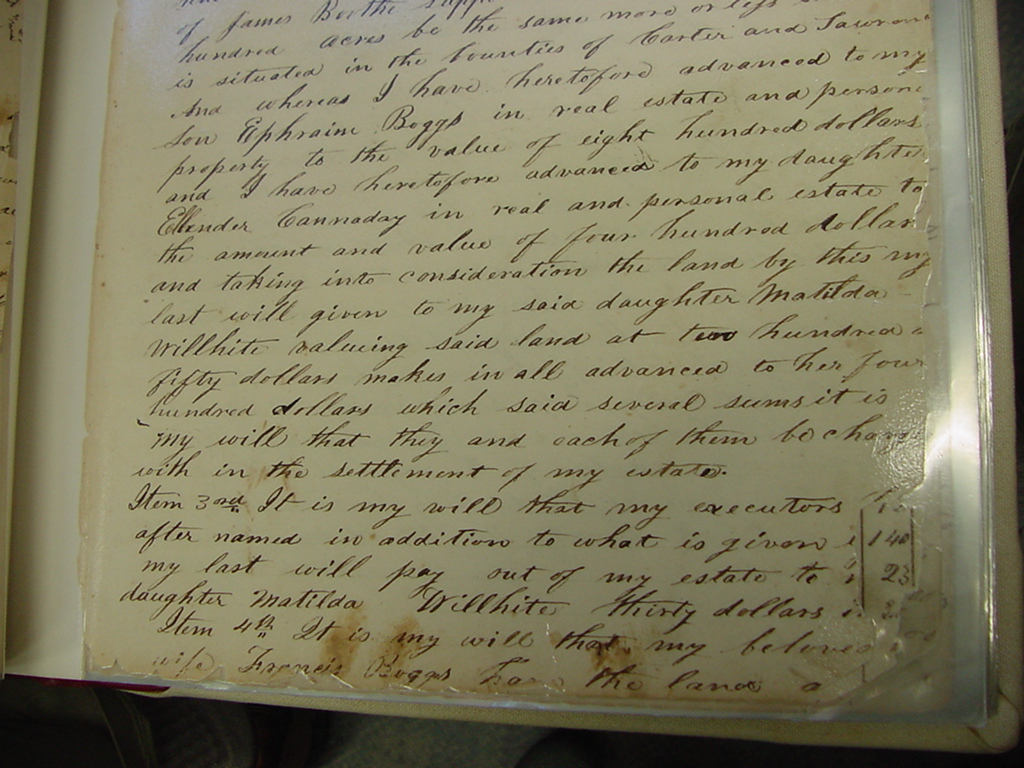 of James Borthe
hundred acres be the same more or less
is situated in the Counties of Carter and
And whereas I have heretofore advanced to my
son Ephraim Boggs in real estate and person
property to the value of eight hundred dollars
and I have heretofore advanced to my daughter
Ellender Cannaday in real and personal estate to
the amount and value of four hundred dollars
and taking into consideration the land by this my
last will given to my said daughter Matilda
Willhite valueing said land at two hundred
fifty dollars makes in all advanced to her four
hundred dollars which said several sums it is
my will that they and each of them be charg
with in the settlement of my estate.
Item 3rd It is my will that my executors
after named in addition to what is given
my last will pay out of my estate to
daughter Matilda Willhite thirty dollars
Item 4th It is my will that my beloved
wife Francis Boggs the land
140
23